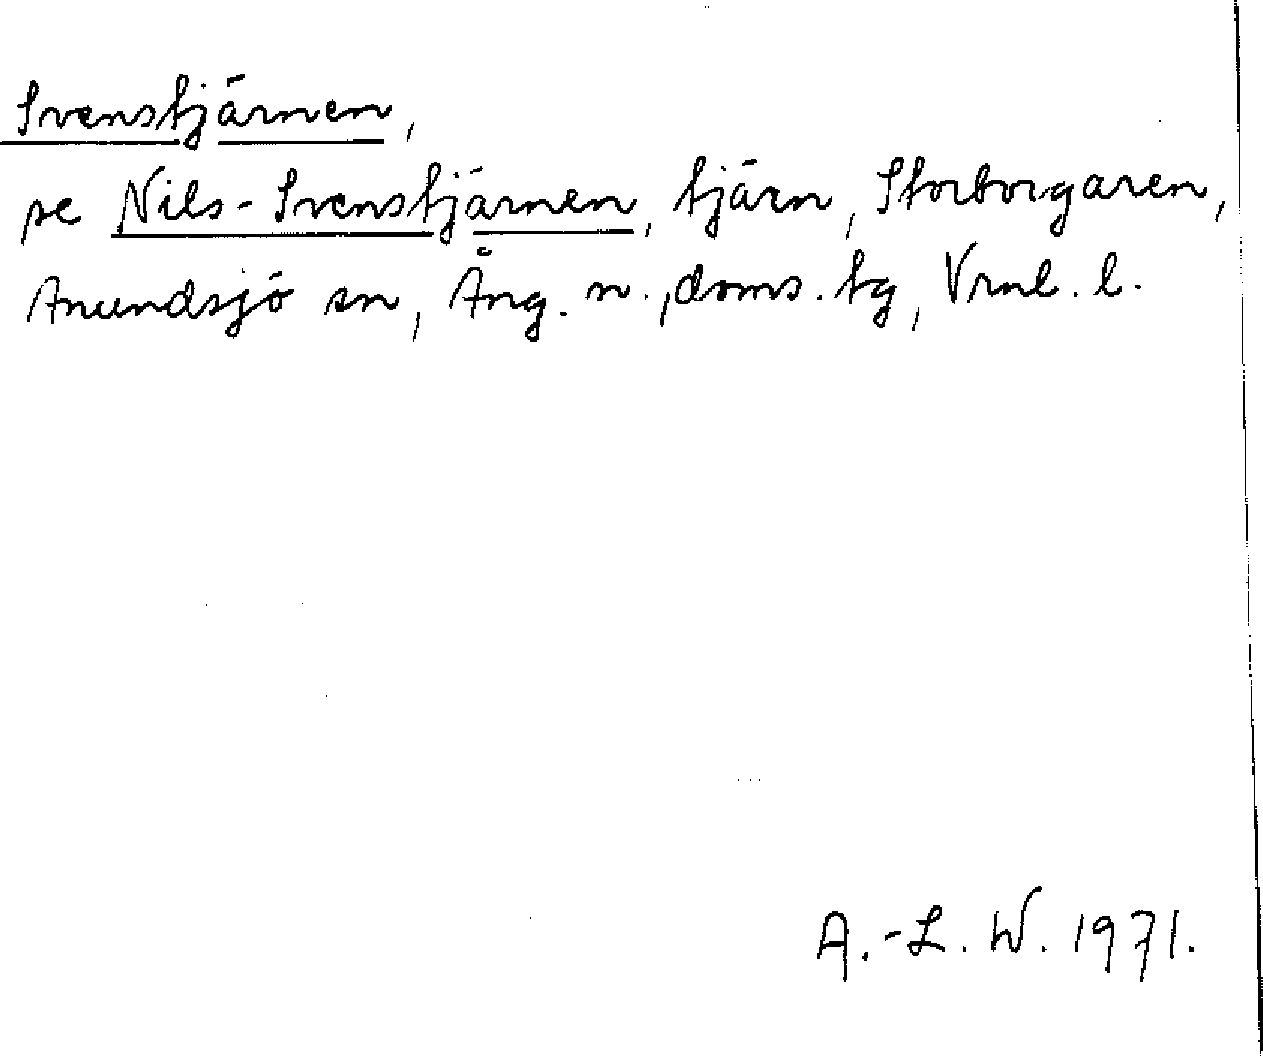 Svenstjärnen,
se Nils-Svenstjärnen, tjärn, Storborgaren,
Anundsjö sn, Ång. n., doms. tg, Vrnl. l.
A.-L. W. 1971.